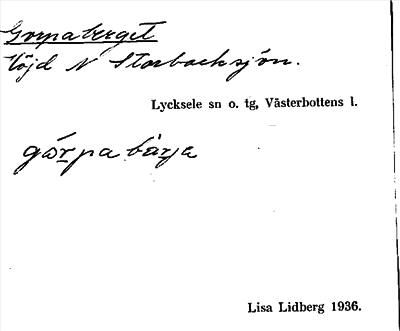 Gorpaberget
Höjd N Storbacksjön.
Lycksele sn o. tg, Västerbottens l.
górpa bàrja
Lisa Lidberg 1936.